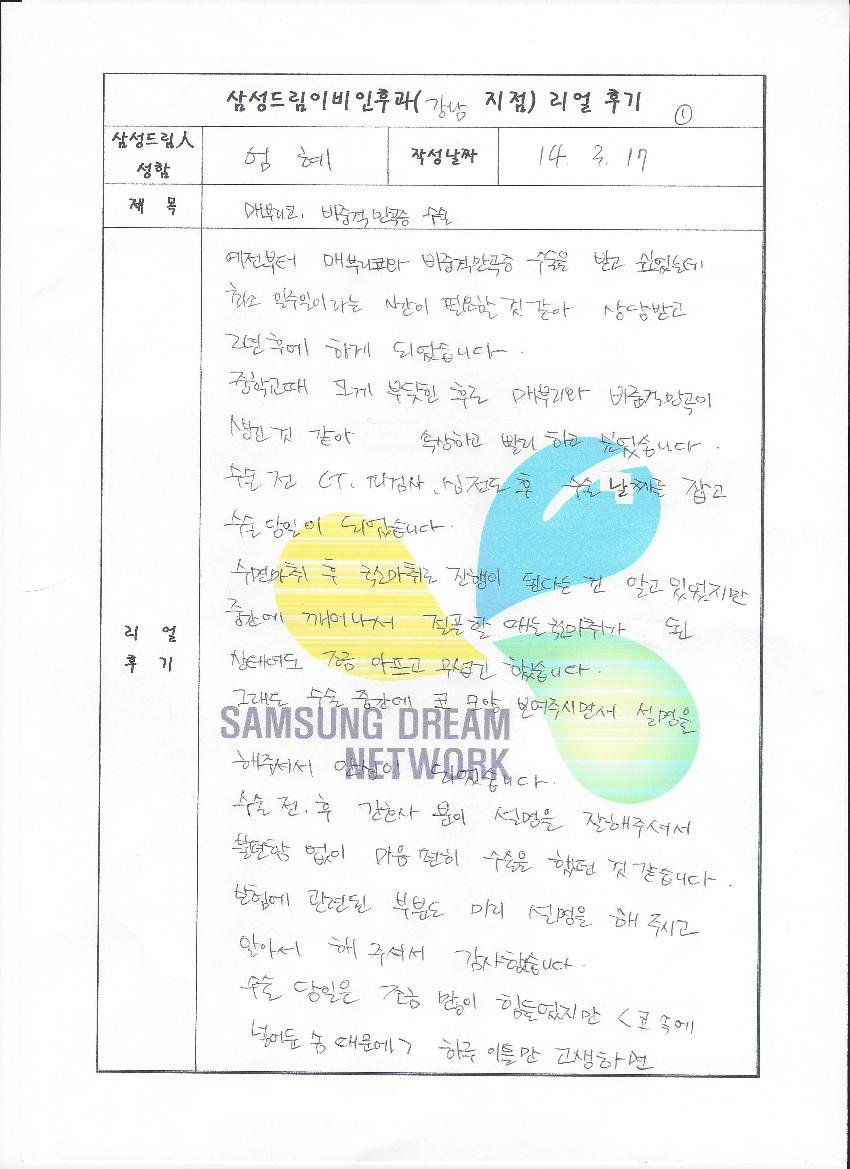 삼성드림이비인후과(강남 지점) 리얼 후기 ①
삼성드림人 성함
엄 혜
작성날짜
14. 3. 17
제 목
매부리코, 비중격만곡증 수술
리 얼 후 기
예전부터 매부리코와 비중격만곡증 수술을 받고 싶었는데
최소 일주일이라는 시간이 필요할 것 같아 상담받고
2년 후에 하게 되었습니다.
중학교때 크게 부딪힌 후로 매부리와 비중격만곡이
생긴 것 같아 속상하고 빨리 하고 싶었습니다.
수술 전 CT, 피검사, 심전도 후 수술 날짜를 잡고
수술 당일이 되었습니다.
수면마취 후 국소마취로 진행이 된다는 건 알고 있었지만
중간에 깨어나서 집도할 때는 국소마취가 된
상태여도 조금 아프고 무섭긴 했습니다.
그래도 수술 중간에 코 모양 보여주시면서 설명을
SAMSUNG DREAM
NETWORK
해주셔서 안심이 되었습니다.
수술 전, 후 간호사 분이 설명을 잘해주셔서
불편함 없이 마음 편히 수술을 했던 것 같습니다.
보험에 관련된 부분도 미리 설명을 해 주시고
알아서 해 주셔서 감사했습니다.
수술 당일은 조금 많이 힘들었지만 <코 속에
넣어둔 솜 때문에> 하루 이틀만 고생하면